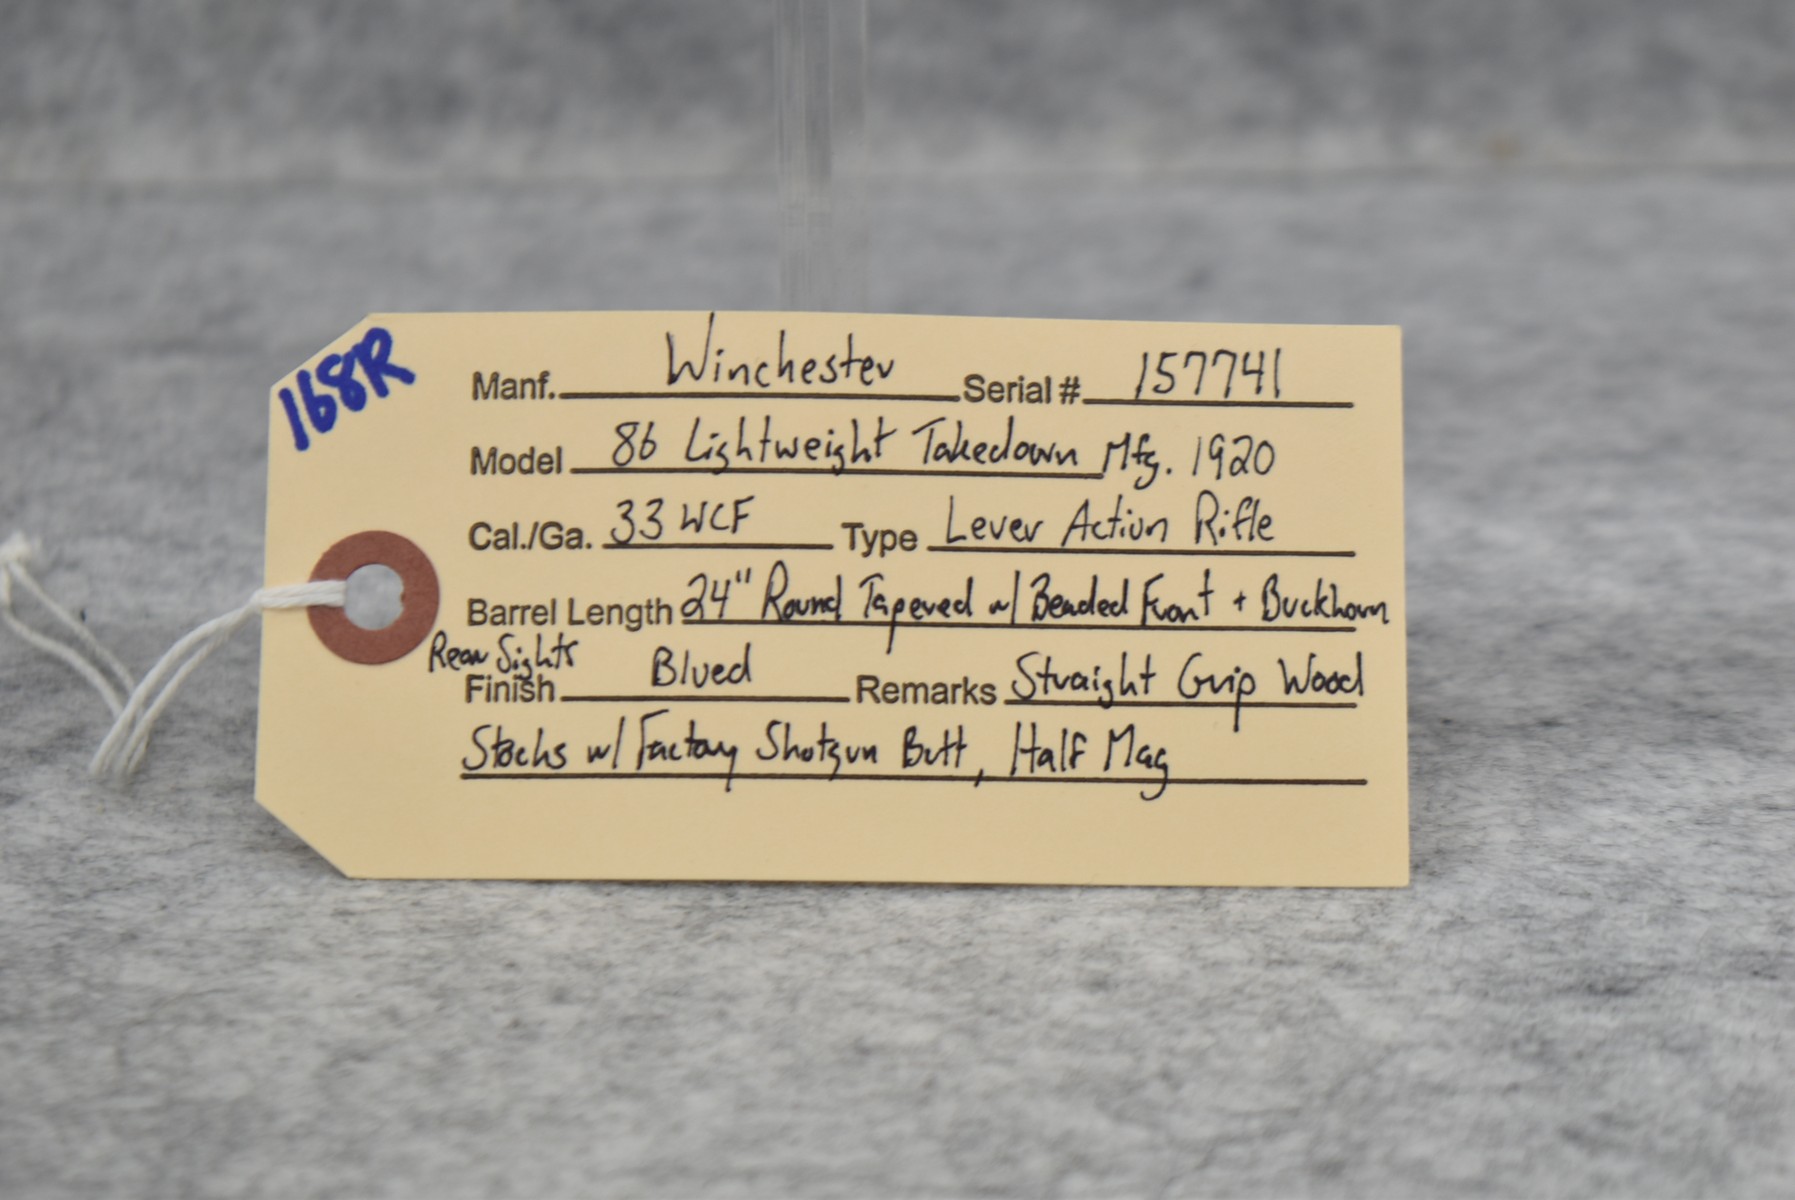 168R
Manf. Winchester Serial # 157741
Model 86 Lightweight Takedown Mfg. 1920
Cal./Ga. 33 WCF Type Lever Action Rifle
Barrel Length 24" Round Tapered w/ Beaded Front + Buckhorn
Rear Sights
Finish Blued Remarks Straight Grip Wood
Stocks w/ Factory Shotgun Butt, Half Mag